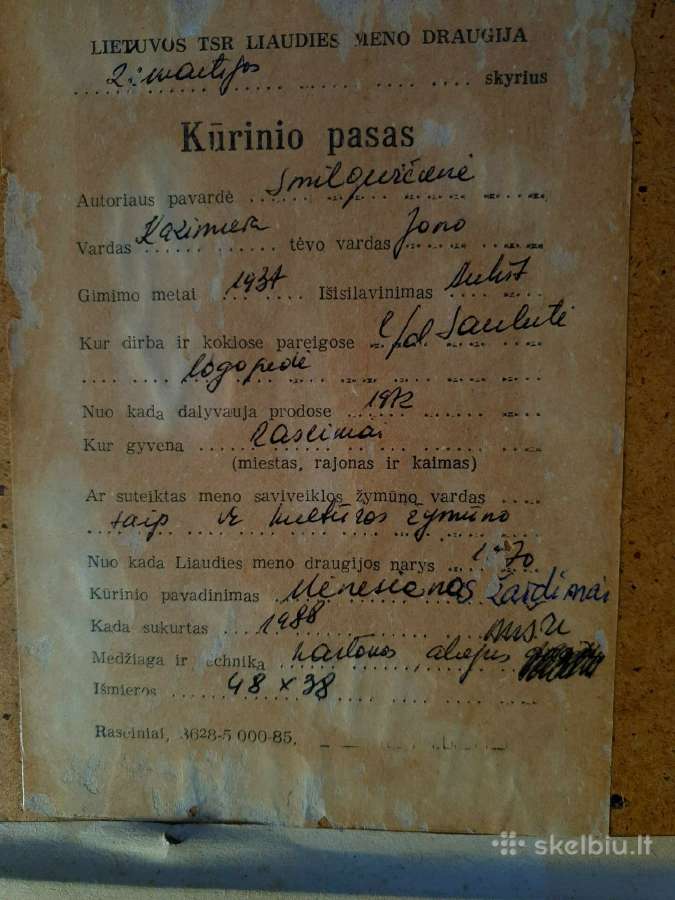 LIETUVOS TSR LIAUDIES MENO DRAUGIJA
skyrius
Kūrinio pasas
Autoriaus pavardė Smilgevičienė
Vardas Kazimiera tėvo vardas Jono
Gimimo metai 1937 Išsilavinimas Aukšt
Kur dirba ir kokiose pareigose l/d. Saulutė
logopedė
Nuo kada dalyvauja prodose 1972
Kur gyvena Raseiniai
(miestas, rajonas ir kaimas)
Ar suteiktas meno saviveiklos žymūno vardas
taip ir kultūros žymūno
Nuo kada Liaudies meno draugijos narys 1970
Kūrinio pavadinimas Mėnesienos Žaidimai
Kada sukurtas 1988
Medžiaga ir technika kartonas, aliejus
Išmieros 48 x 38
Raseiniai, 3628-5 000-85.
skelbiu.lt